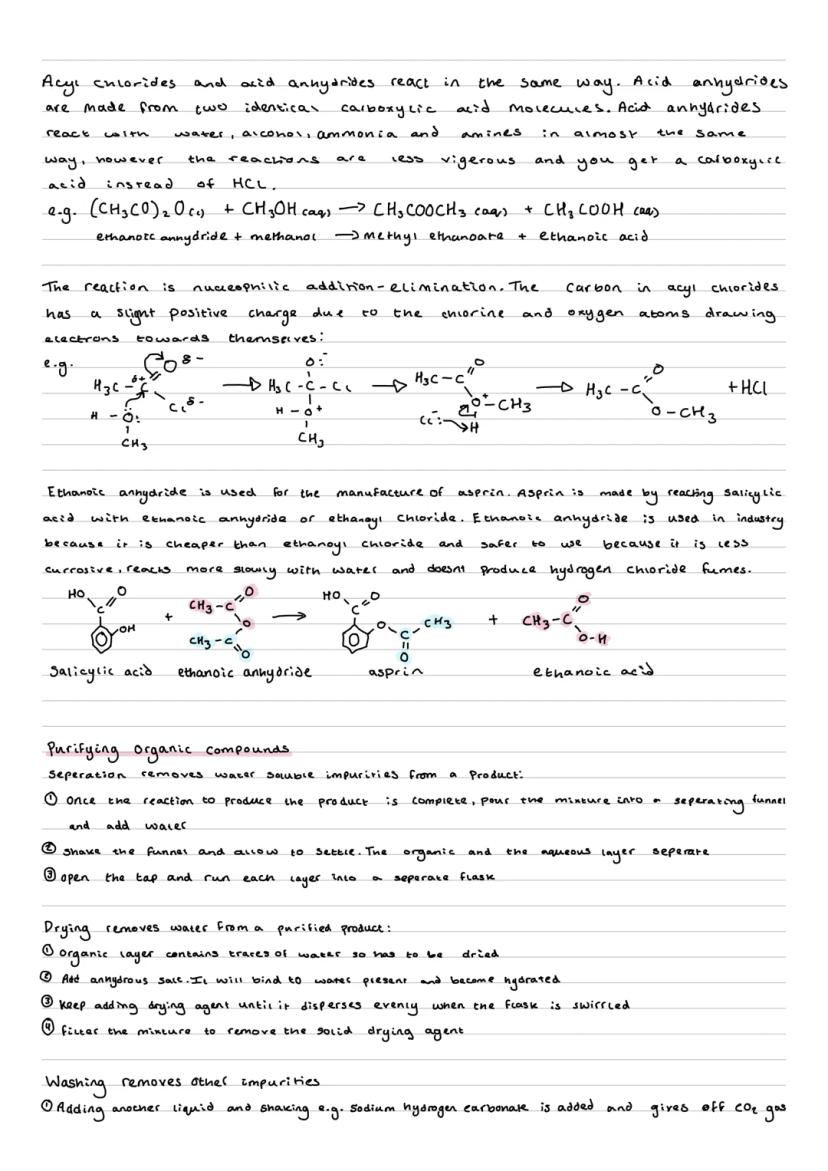 Acyl chlorides and acid anhydrides react in the same way. Acid anhydrides
are made from two identical carboxylic acid molecules. Acid anhydrides
react with water, alcohol, ammonia and amines in almost the same
way, however the reactions are less vigerous and you get a carboxylic
acid instead of HCl.
e.g. (CH₃CO)₂O(l) + CH₃OH(aq) → CH₃COOCH₃(aq) + CH₃COOH(aq)
ethanoic anhydride + methanol → methyl ethanoate + ethanoic acid
The reaction is nucleophilic addition-elimination. The carbon in acyl chlorides
has a slight positive charge due to the chlorine and oxygen atoms drawing
electrons towards themselves:
e.g.
H₃C-Cδ+ Oδ- Clδ- H-Ö: CH₃ → H₃C-C-Cl O:⁻ H-O+ CH₃ → H₃C-C O O+-CH₃ H Cl:⁻ → H₃C-C O O-CH₃ + HCl
Ethanoic anhydride is used for the manufacture of asprin. Asprin is made by reacting salicylic
acid with ethanoic anhydride or ethanoyl chloride. Ethanoic anhydride is used in industry
because it is cheaper than ethanoyl chloride and safer to use because it is less
currosive, reacts more slowly with water and doesnt produce hydrogen chloride fumes.
HO C O OH + CH₃-C O O CH₃-C O → HO C O O C CH₃ O + CH₃-C O O-H
Salicylic acid ethanoic anhydride asprin ethanoic acid
Purifying organic compounds
Seperation removes water soluble impurities from a product:
① Once the reaction to produce the product is complete, pour the mixture into a seperating funnel
and add water
② Shake the funnel and allow to settle. The organic and the aqueous layer seperate
③ open the tap and run each layer into a seperate flask
Drying removes water from a purified product:
① Organic layer contains traces of water so has to be dried
② Add anhydrous salt. It will bind to water present and become hydrated
③ Keep adding drying agent until it disperses evenly when the flask is swirled
④ filter the mixture to remove the solid drying agent
Washing removes other impurities
① Adding another liquid and shaking e.g. sodium hydrogen carbonate is added and gives off CO₂ gas